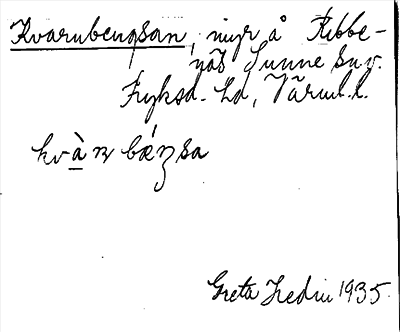 Kvarnbengsan, myr å Ribbe-
näs Sunne sn v.
Fryksd. hd, Värml. l.
kvàɳ bǽŋsa
Greta Hedin 1935.